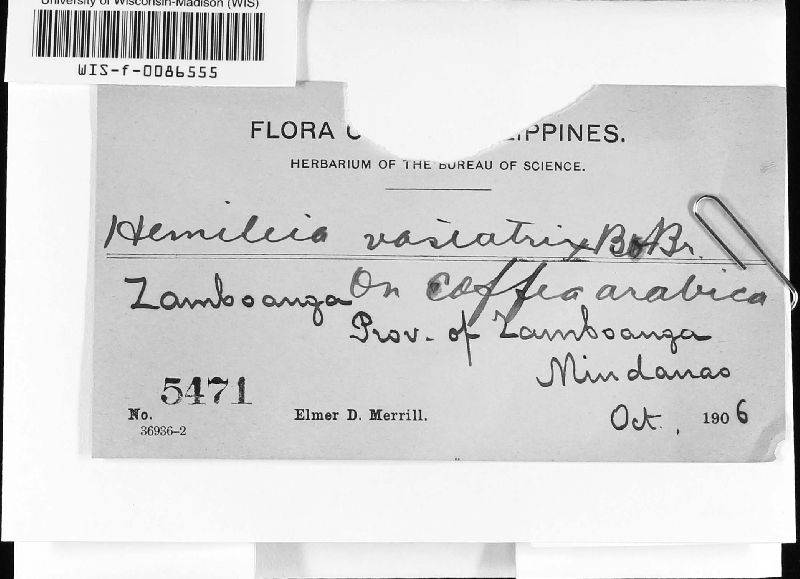 University of Wisconsin-Madison (WIS)
WIS-f-0086555
FLORA PPINES.
HERBARIUM OF THE BUREAU OF SCIENCE.
Hemileia vastatrix B & Br.
Zamboanga On Coffea arabica
Prov. of Zamboanga
Mindanao
No. 5471 Elmer D. Merrill. Oct, 1906
36936-2